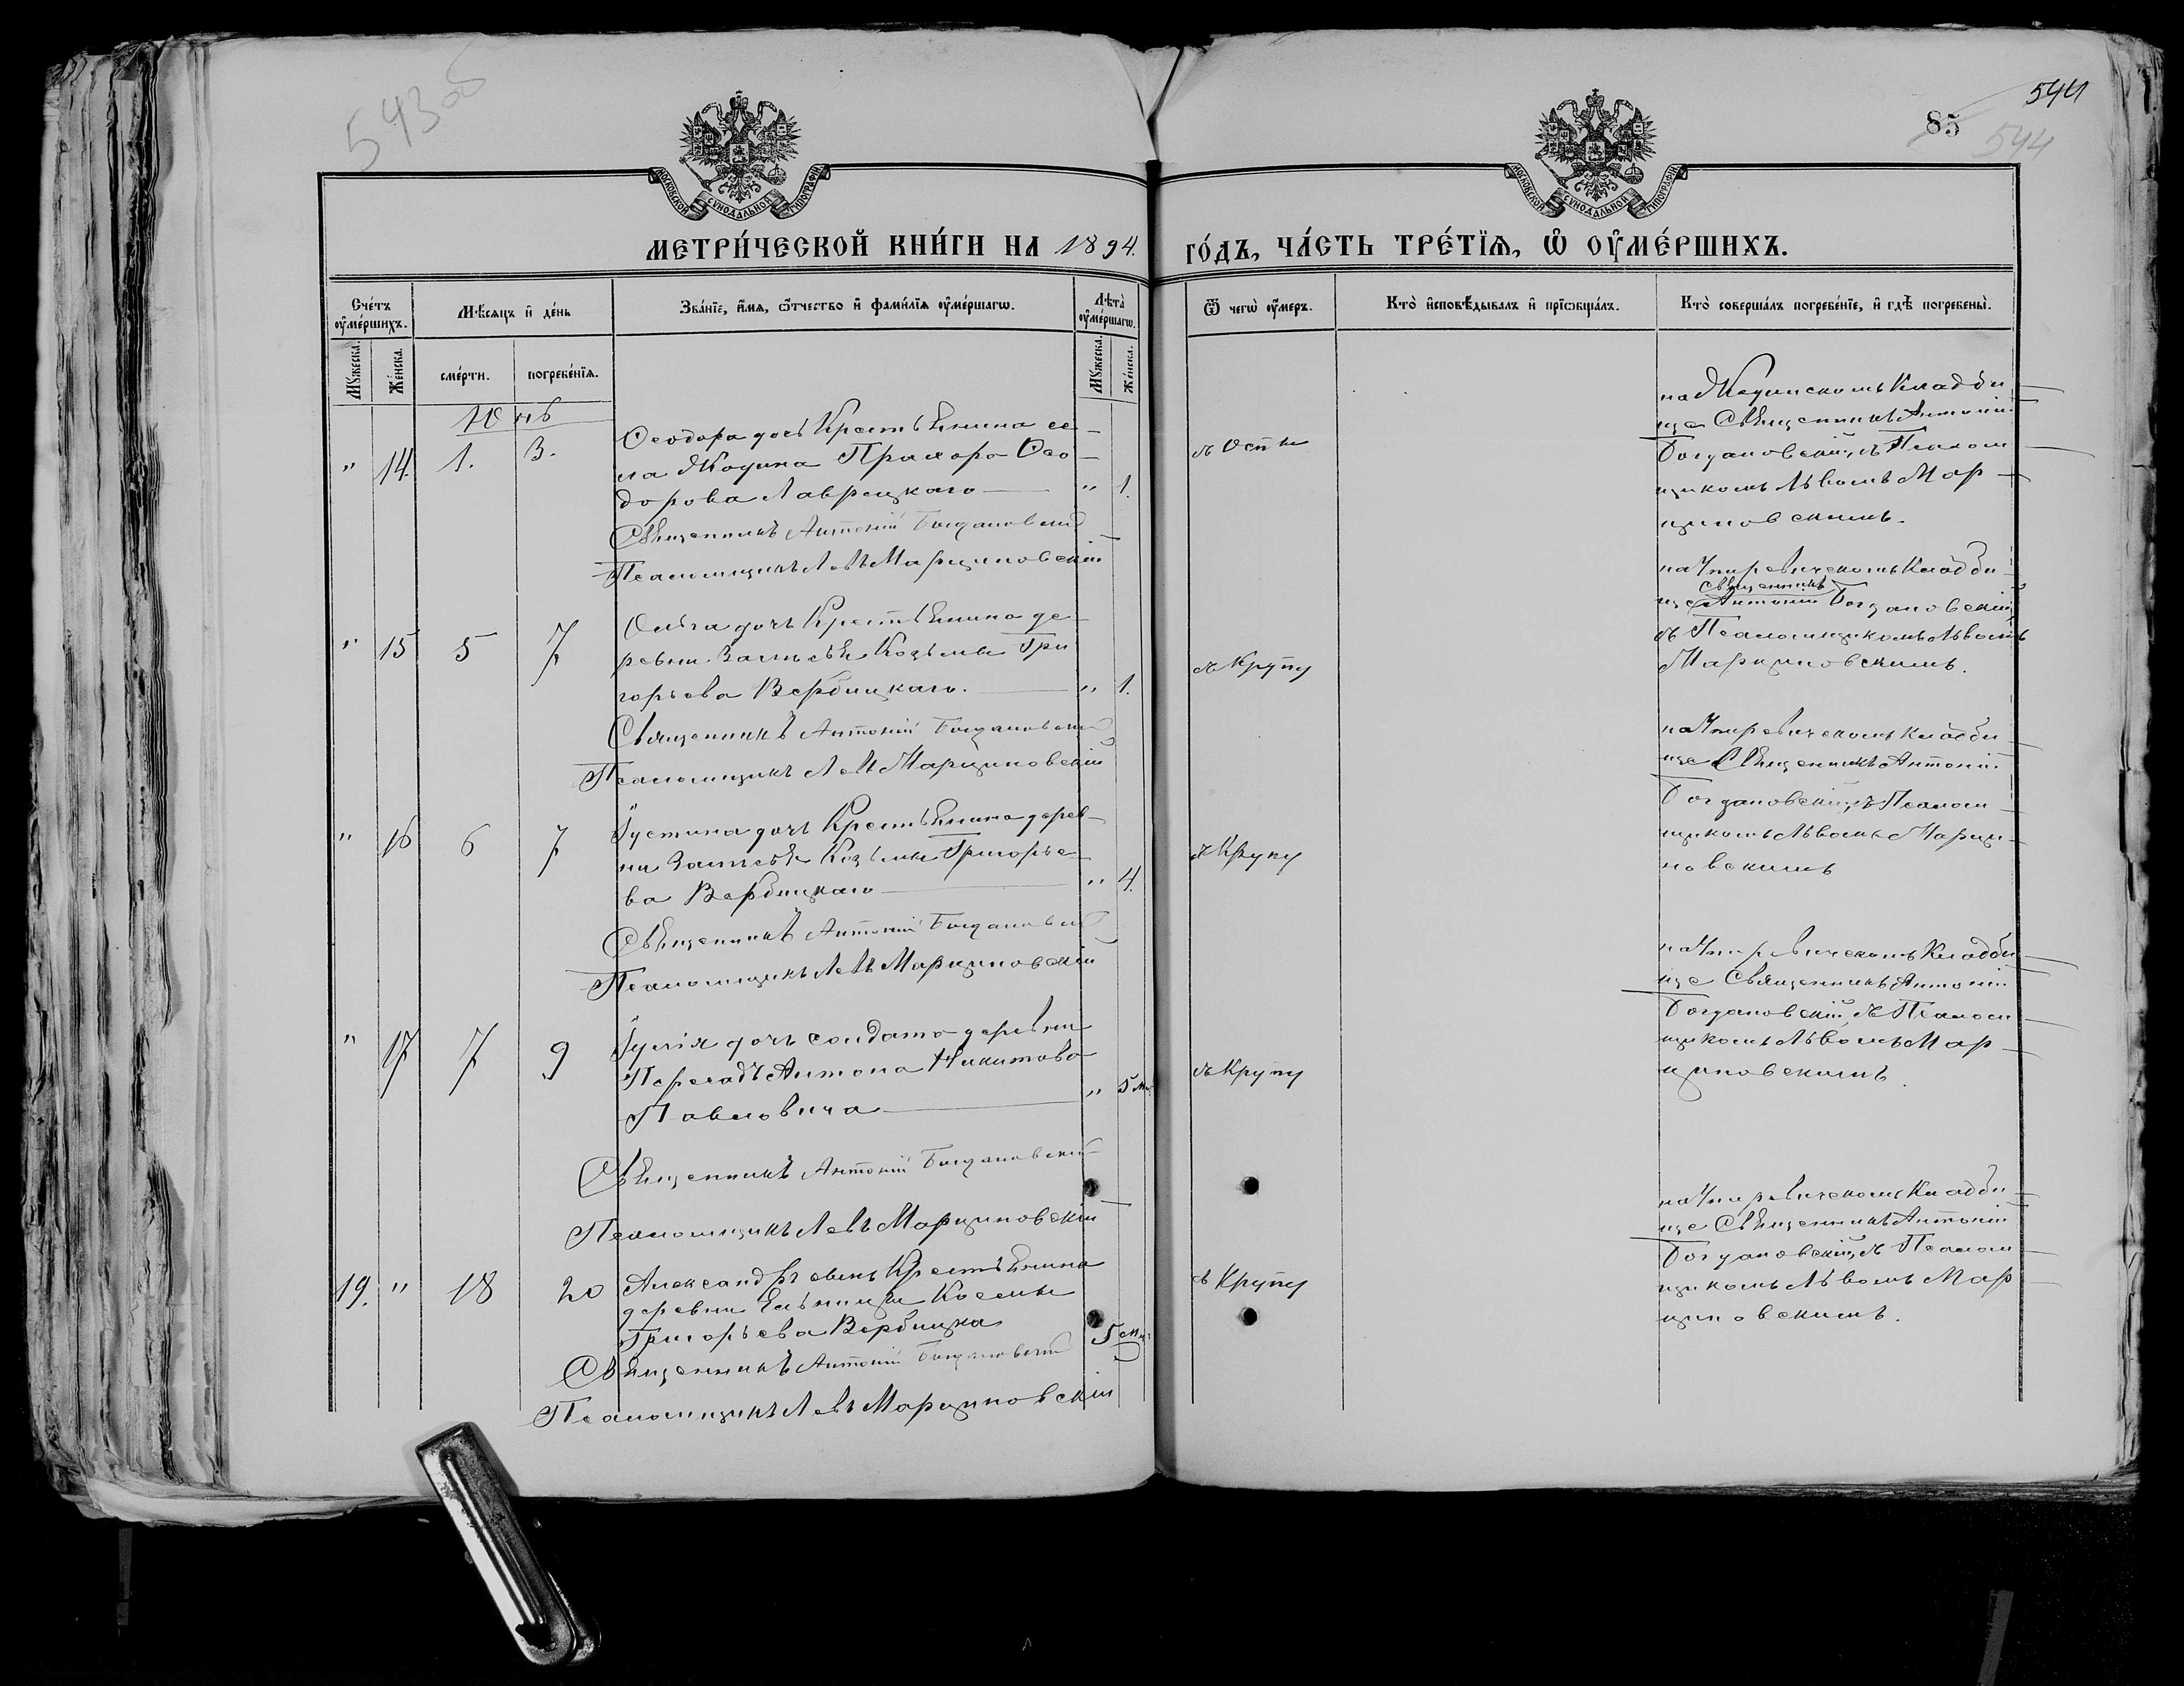 543 об
544
85
544
МОСКОВСКОЙ СѴНОДАЛЬНОЙ ТИПОГРАФІИ
МОСКОВСКОЙ СѴНОДАЛЬНОЙ ТИПОГРАФІИ
МЕТРИ́ЧЕСКОЙ КНИ́ГИ НА 1894. ГО́ДЪ, ЧА́СТЬ ТРЕ́ТІѦ, Ѡ҆ ОУ҆МЕ́РШИХЪ.
Сче́тъ оу҆ме́ршихъ.
Мѣ́сяцъ и҆ де́нь
Зва́нїе, и҆́мѧ, ѻ҆́тчество и҆ фами́лїѧ оу҆ме́ршагѡ.
Лѣ́та оу҆ме́ршагѡ.
Ѿ чегѡ̀ оу҆́меръ.
Кто̀ и҆сповѣ́дывалъ и҆ прїѡбща́лъ.
Кто̀ соверша́лъ погребе́нїе, и҆ гдѣ̀ погребены̀.
Мꙋ́жеска.
Же́нска.
сме́рти.
погребе́нїѧ.
Мꙋ́жеска.
Же́нска.
Юнь
" 14. 1. 3.
Ѳеодора дочь Крестьянина се-
ла Жодина Прохора Ѳео-
дорова Лаврецкаго — " 1.
Священникъ Антоній Богдановскій
Псаломщикъ Левъ Марциновскій
съ Оспы
на Жодинскомъ Кладби-
ще Священникъ Антоній
Богдановскій, съ Псалом-
щикомъ Львомъ Мар-
циновскимъ.
" 15 5 7
Ольга дочь Крестьянина де-
ревни Козьмы Гри
горьева Вербицкаго. — " 1.
Священникъ Антоній Богдановскій
Псаломщикъ Левъ Марциновскій
съ Крупу
Кладби-
ще Священникъ Антоній Богдановскій,
съ Псаломщикомъ Львомъ
Марциновскимъ.
" 16 6 7
Іустина дочь Крестьянина дерев-
ни Козьмы Григорье-
ва Вербицкаго — " 4.
Священникъ Антоній Богдановскій
Псаломщикъ Левъ Марциновскій
съ Крупу
Кладби-
ще Священникъ Антоній
Богдановскій, съ Псалом-
щикомъ Львомъ Марци-
новскимъ
" 17 7 9
Іулія дочь солдата деревни
Антона Никитова
Павловича — " 5 м.
Священникъ Антоній Богдановскій
Псаломщикъ Левъ Марциновскій
съ Крупу
Кладби-
ще Священникъ Антоній
Богдановскій, съ Псалом-
щикомъ Львомъ Мар-
циновскимъ.
19. " 18 20
Александръ сынъ Крестьянина
деревни Космы
Григорьева Вербицка 5 м.
Священникъ Антоній Богдановскій
Псаломщикъ Левъ Марциновскій
съ Крупу
Кладби-
ще Священникъ Антоній
Богдановскій, съ Псалом-
щикомъ Львомъ Мар-
циновскимъ.